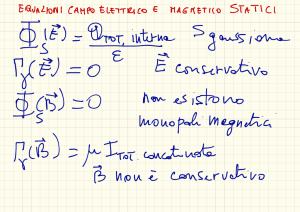 EQUAZIONI CAMPO ELETTRICO E MAGNETICO STATICI
Φ_S(E⃗) = Q_TOT, interna / ε S gaussiana
Γ_γ(E⃗) = 0 E⃗ conservativo
Φ_S(B⃗) = 0 non esistono
monopoli magnetici
Γ_γ(B⃗) = μ I_TOT. concatenata
B⃗ non è conservativo